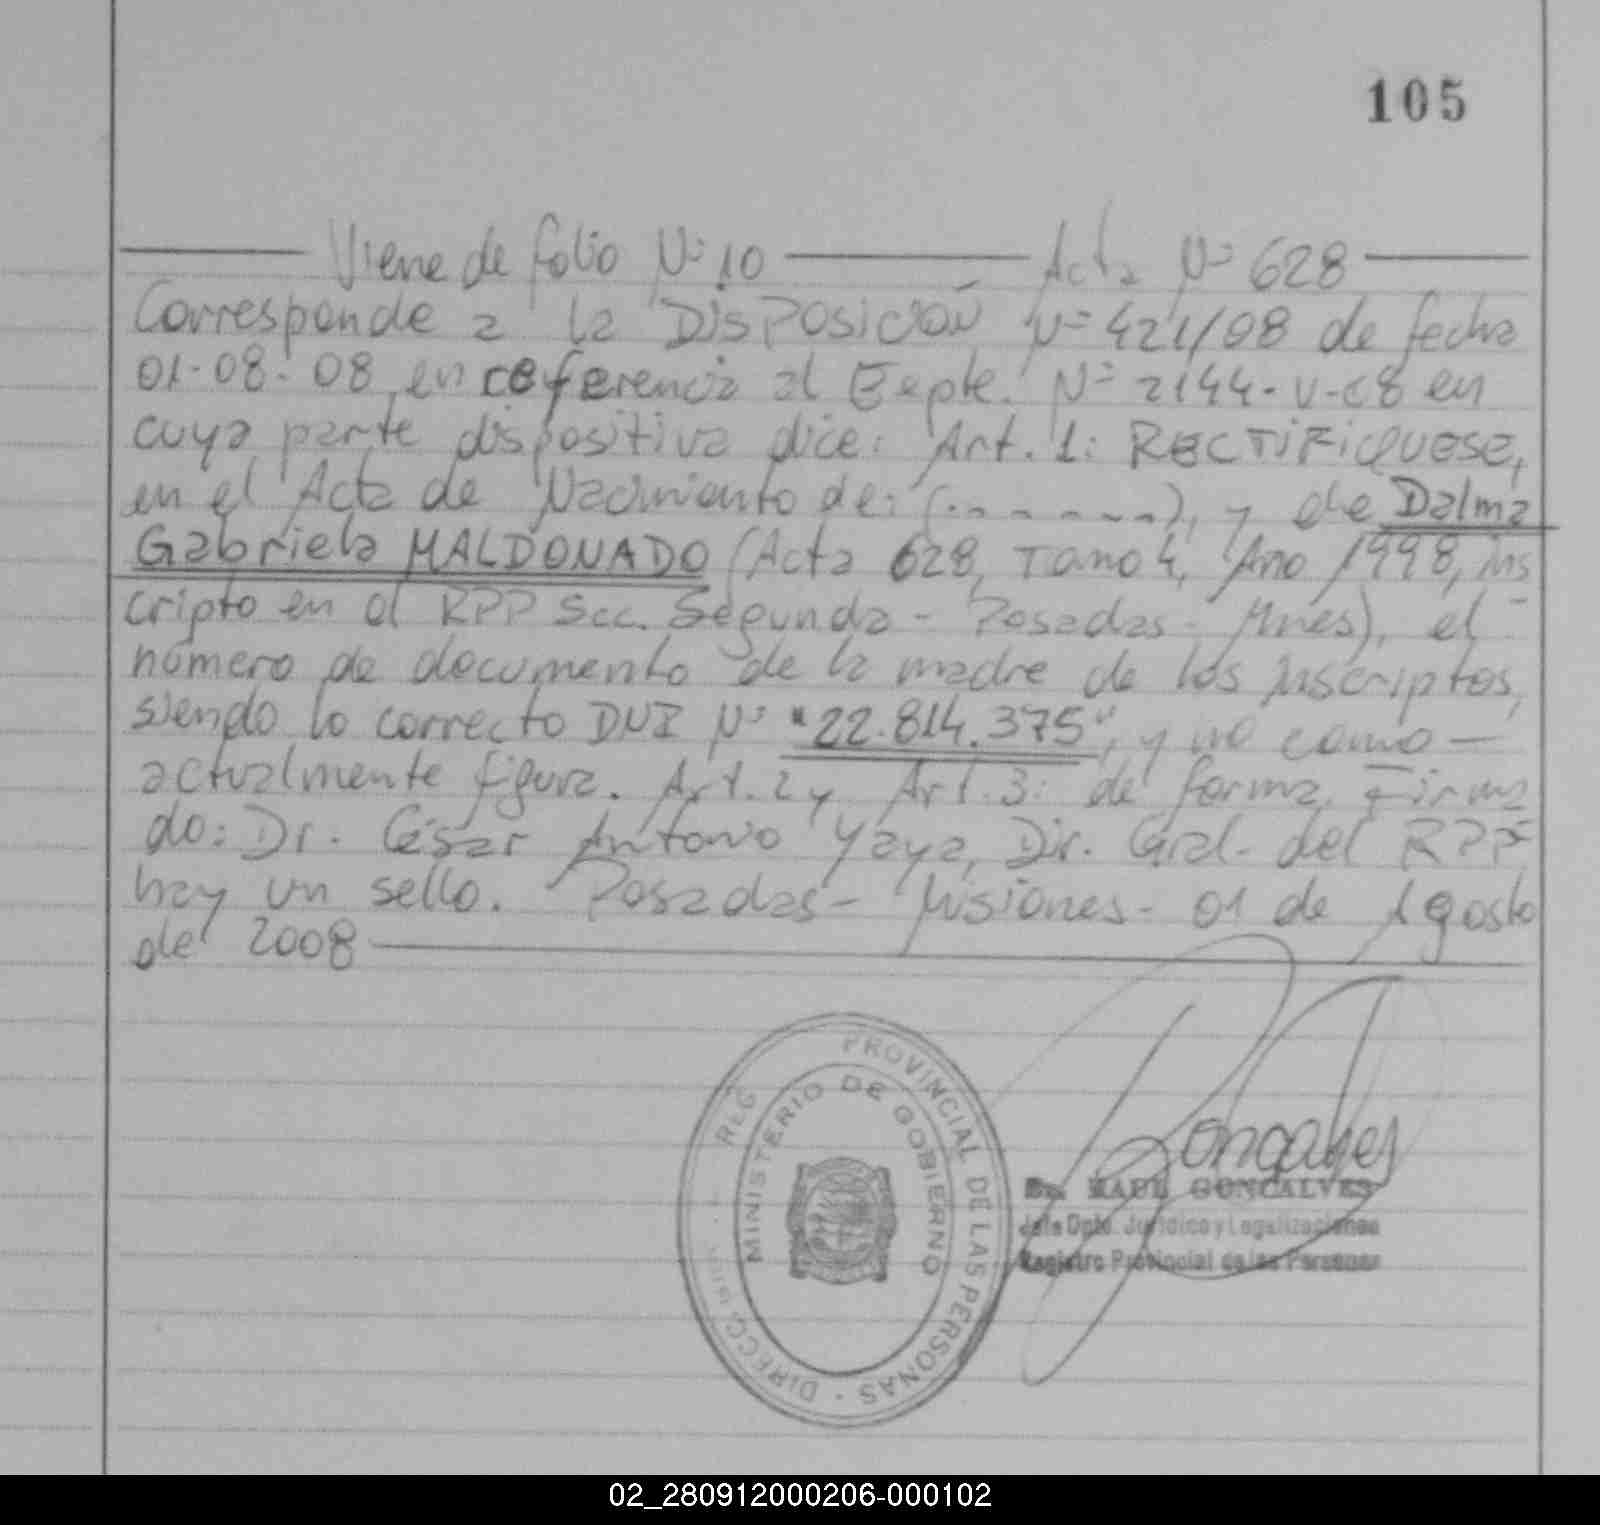 105
Viene de folio Nº 10 Acta Nº 628
Corresponde a la DISPOSICIÓN Nº 421/08 de fecha
01-08-08 en referencia al Expte. Nº 2144-V-08 en
cuya parte dispositiva dice: Art. 1: RECTIFIQUESE,
en el Acta de Nacimiento de: (.------), y de Dalma
Gabriela MALDONADO (Acta 628, Tomo 4, Año 1998, ins
cripto en el RPP Scc. Segunda - Posadas - Mnes), el
número de documento de la madre de los inscriptos,
siendo lo correcto DNI Nº "22.814.375", y no como —
actualmente figura. Art. 2 y Art. 3: de forma. Firma
do: Dr. César Antonio Yaya, Dir. Gral. del RPP
hay un sello. Posadas - Misiones - 01 de Agosto
de 2008
PROVINCIAL DE LAS PERSONAS - DIRECC
REG
MINISTERIO DE GOBIERNO
Goncalves
Dr. RAUL GONCALVES
Jefe Dpto. Jurídico y Legalizaciones
Registro Provincial de las Personas
02_280912000206-000102